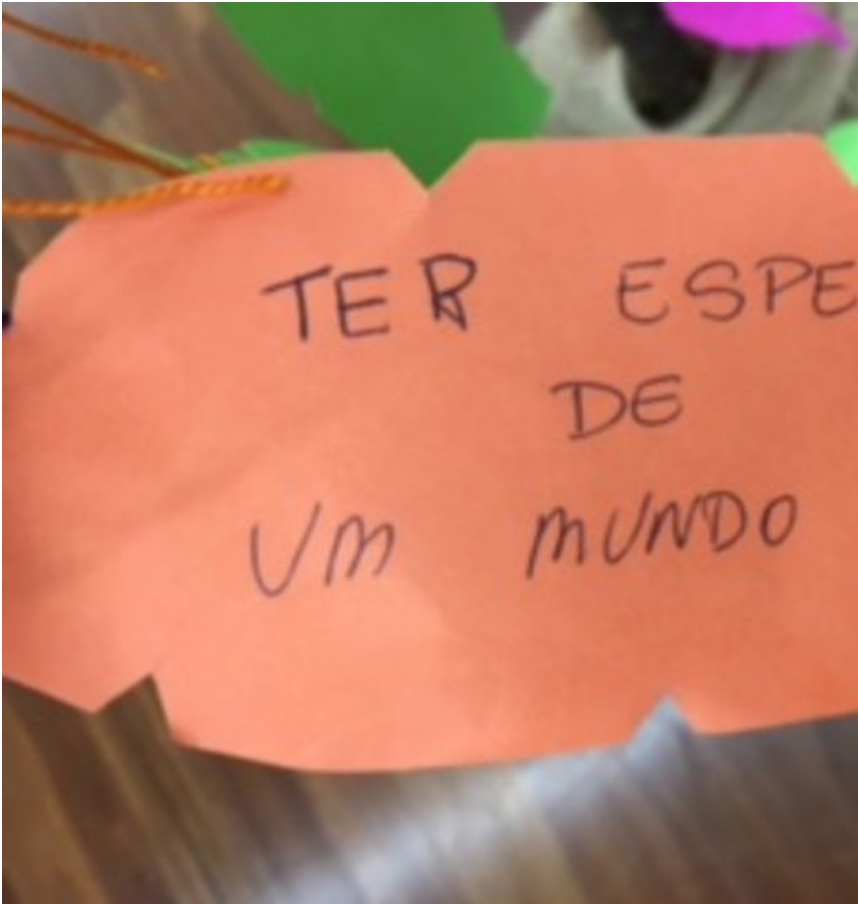 TER ESPE
DE
UM MUNDO